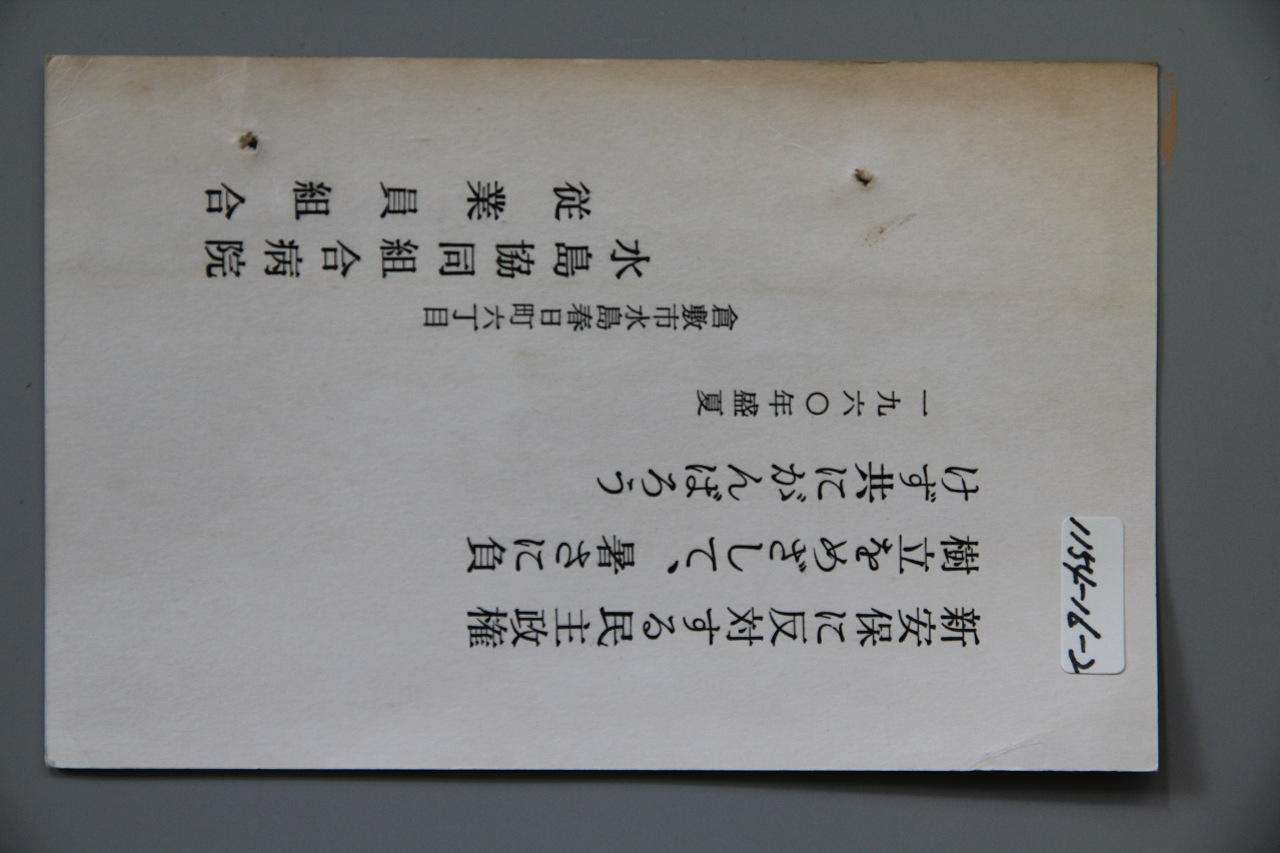 新安保に反対する民主政権
樹立をめざして、暑さに負
けず共にがんばろう
一九六〇年盛夏
倉敷市水島春日町六丁目
水島協同組合病院
従業員組合
1154-16-2